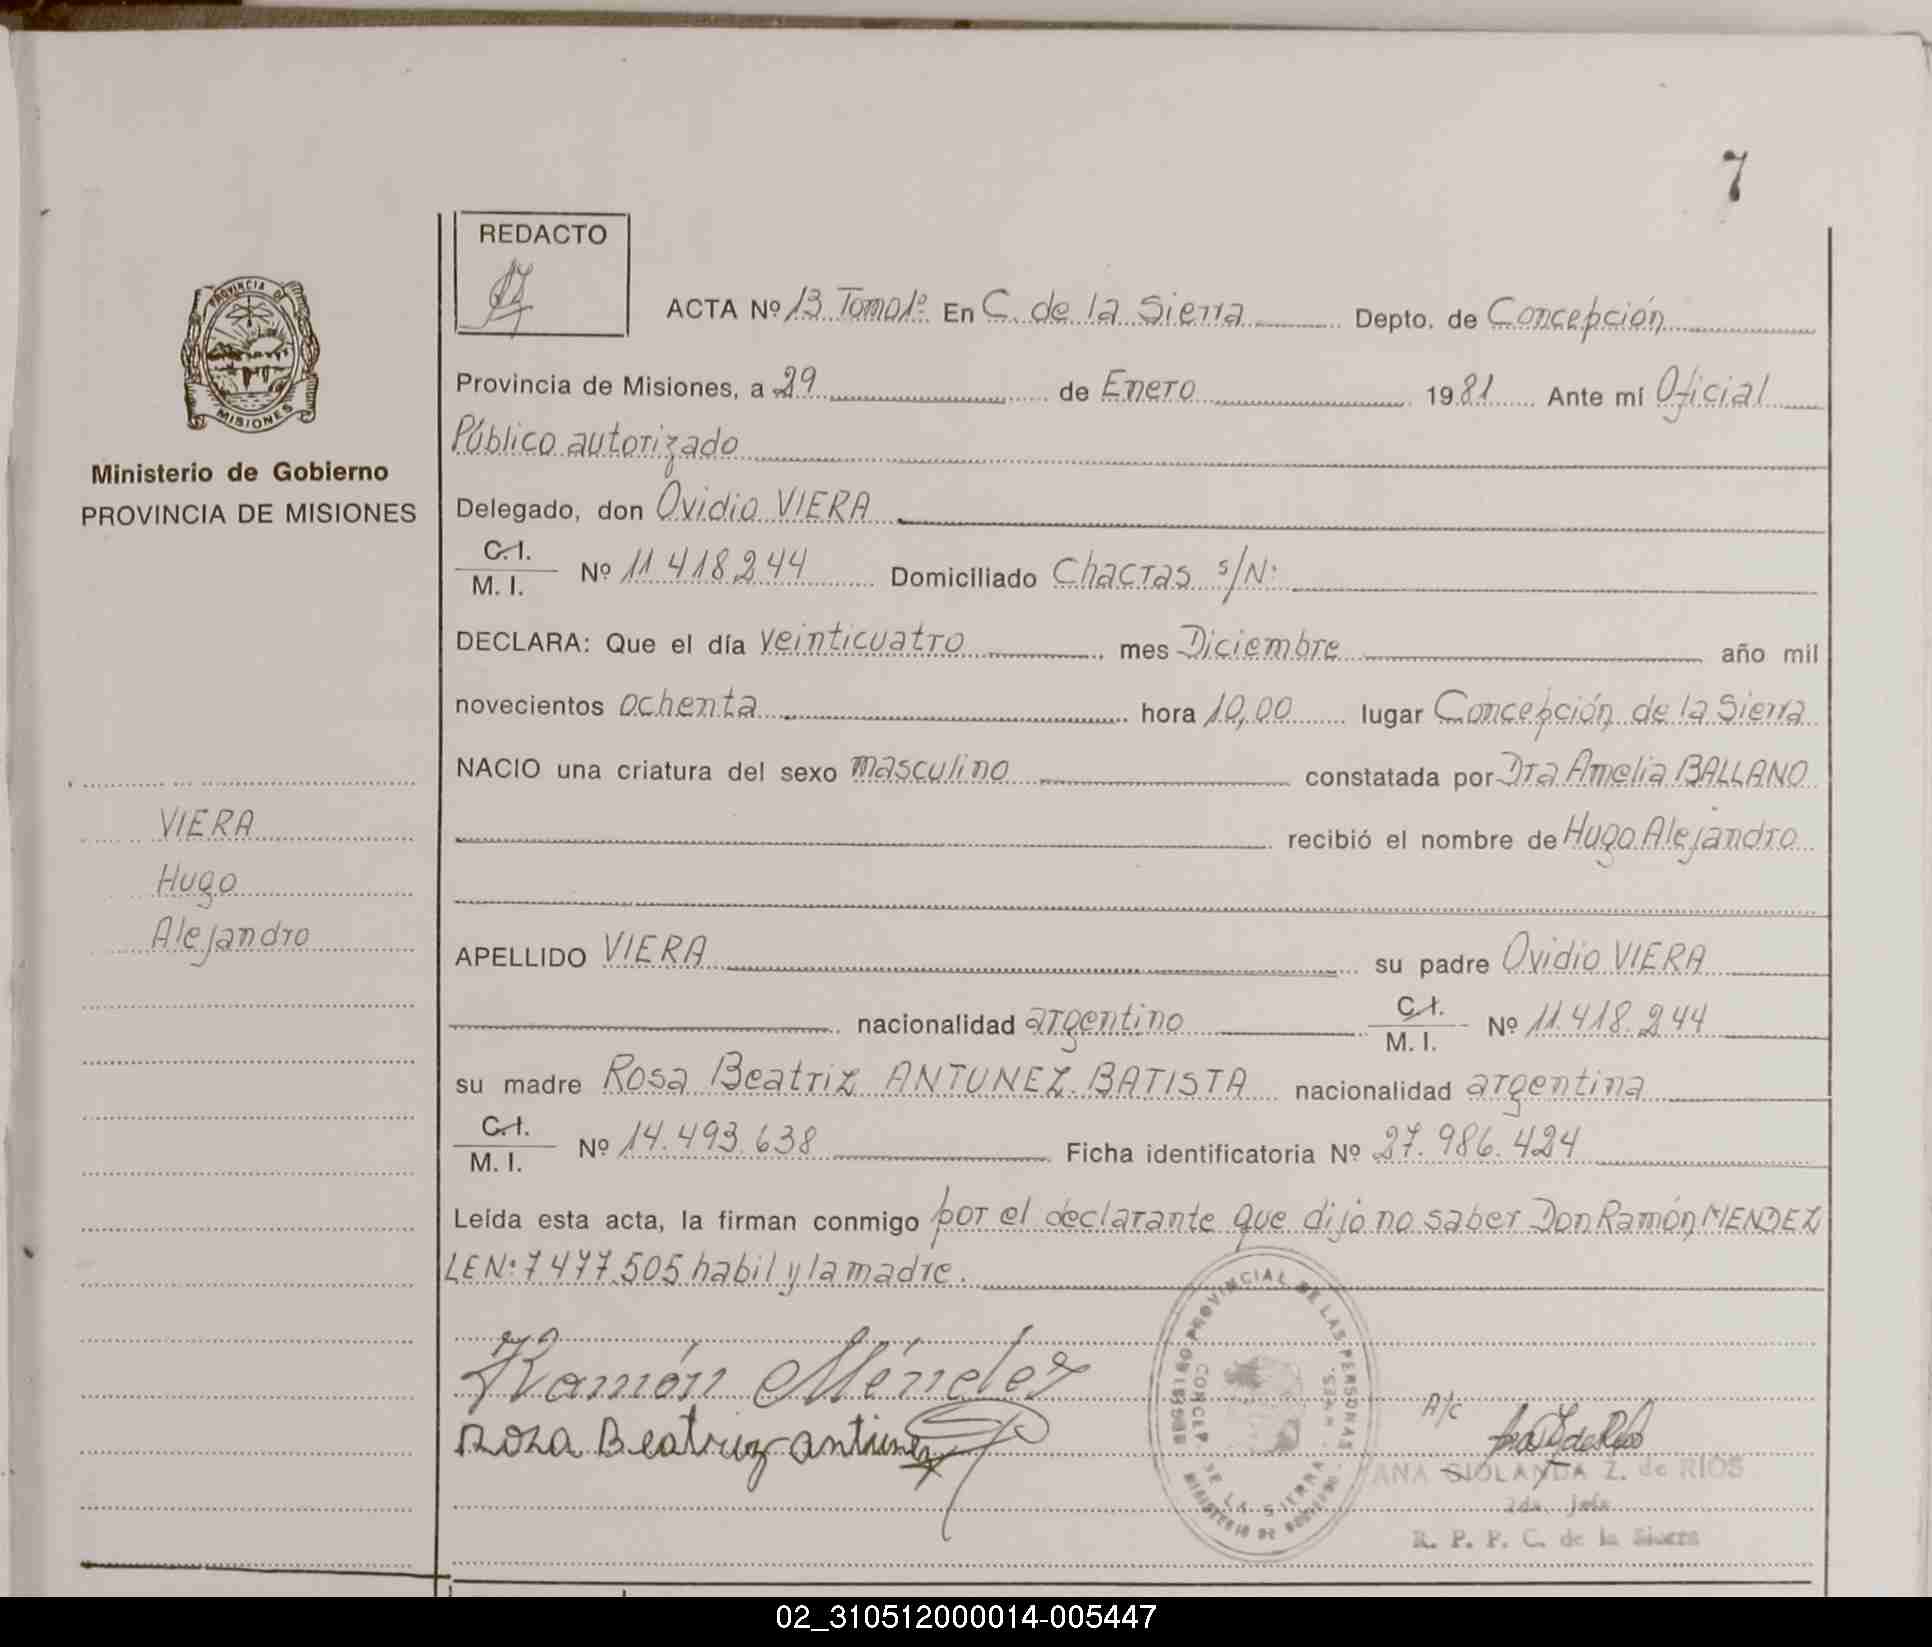 7
REDACTO
ACTA Nº 13 Tomo 1º En C. de la Sierra Depto. de Concepción
Provincia de Misiones, a 29 de Enero 1981 Ante mí Oficial
Público autorizado
Delegado, don Ovidio VIERA
C.I. / M. I. Nº 11 418 244 Domiciliado Chacras s/Nº
DECLARA: Que el día veinticuatro mes Diciembre año mil
novecientos ochenta hora 10,00 lugar Concepción de la Sierra
NACIO una criatura del sexo masculino constatada por Dra Amelia BALLANO
recibió el nombre de Hugo Alejandro
APELLIDO VIERA su padre Ovidio VIERA
nacionalidad argentino C.I. / M. I. Nº 11.418.244
su madre Rosa Beatriz ANTUNEZ BATISTA nacionalidad argentina
C.I. / M. I. Nº 14.493.638 Ficha identificatoria Nº 27.986.424
Leída esta acta, la firman conmigo por el declarante que dijo no saber Don Ramón MENDEZ
LENº 7 477.505 habil y la madre.
Ramón Méndez
Roza Beatriz antunez
A/c
ANA YOLANDA Z. de RIOS
2da. jefe
R. P. P. C. de la Sierra
REGISTRO PROVINCIAL DE LAS PERSONAS
CONCEP. DE LA SIERRA - MNES.
MINISTERIO DE GOBIERNO
PROVINCIA DE
MISIONES
Ministerio de Gobierno
PROVINCIA DE MISIONES
VIERA
Hugo
Alejandro
02_310512000014-005447